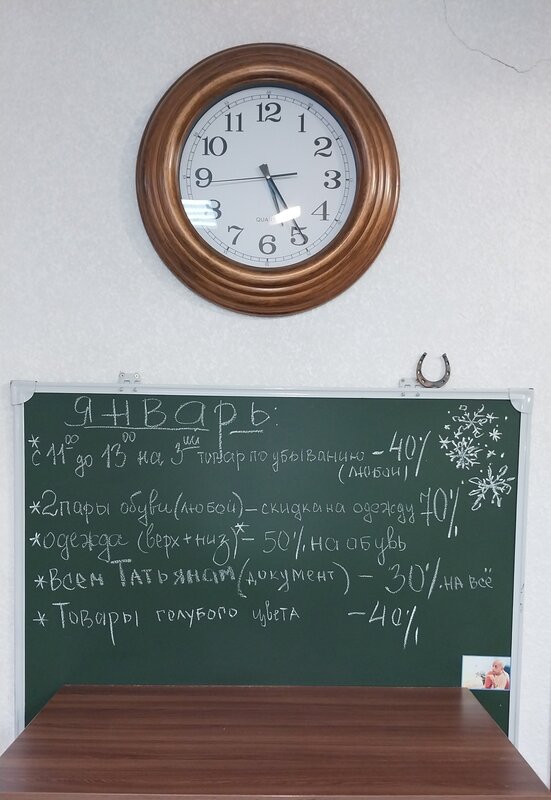 12
1
2
3
4
5
6
7
8
9
10
11
ЯНВАРЬ:
* с 11⁰⁰ до 13⁰⁰ на 3ий товар по убыванию - 40%
(любой)
* 2 пары обуви (любой) - скидка на одежду 70%
* одежда (верх + низ)* - 50% на обувь
* Всем Татьянам (документ) - 30% на всё
* Товары голубого цвета - 40%